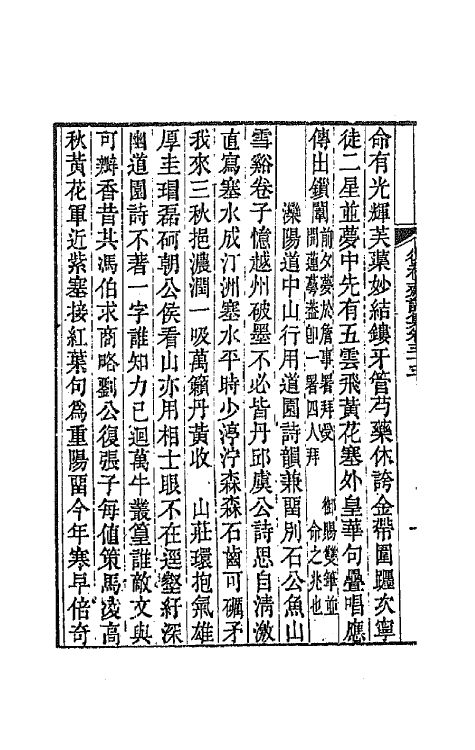 命有光輝芙蕖妙結鏤牙管芍藥休誇金帶圍躔次寧
徒二星並夢中先有五雲飛黃花塞外皇華句疊唱應
傳出鎖闈
前夕夢於詹事署拜受 御賜雙筆並
開蓮蕚蓋卽一署四人拜 命之兆也
灤陽道中山行用道園詩韻兼留別石公魚山
雪谿卷子憶越州破墨不必皆丹邱虞公詩思自清激
直寫塞水成汀洲塞水平時少渟泞森森石齒可礪矛
我來三秋挹濃潤一吸萬籟丹黃收 山莊環抱氣雄
厚圭瑁磊砢朝公侯看山亦用相士眼不在逕壑紆深
幽道園詩不著一字誰知力已迴萬牛叢篁誰敵文與
可瓣香昔共馮伯求商略劉公復張子每値策馬凌高
秋黃花軍近紫塞接紅葉句爲重陽畱今年寒早倍奇